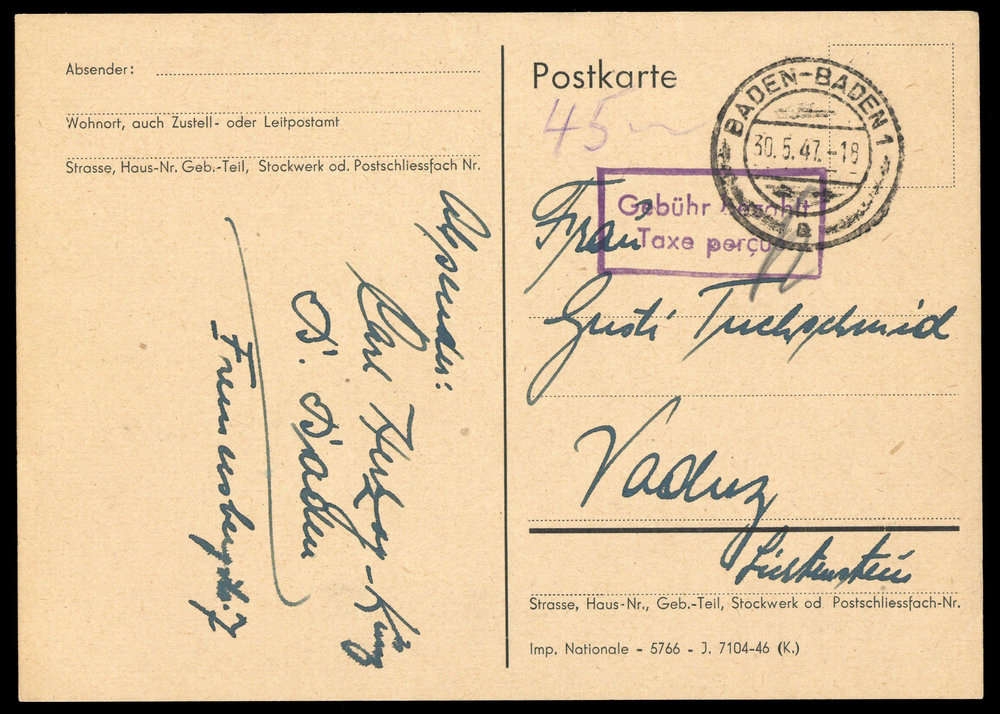 Absender:
Wohnort, auch Zustell- oder Leitpostamt
Strasse, Haus-Nr. Geb.-Teil, Stockwerk od. Postschliessfach Nr.
Absender:
Carl Herzog-
B. Baden
Postkarte
45
BADEN-BADEN 1
30.5.47.-18
a
Gebühr bezahlt
Taxe perçue
Frau
Gusti Tuchschmid
Vaduz
Lichtenstein
Strasse, Haus-Nr., Geb.-Teil, Stockwerk od Postschliessfach-Nr.
Imp. Nationale - 5766 - J. 7104-46 (K.)